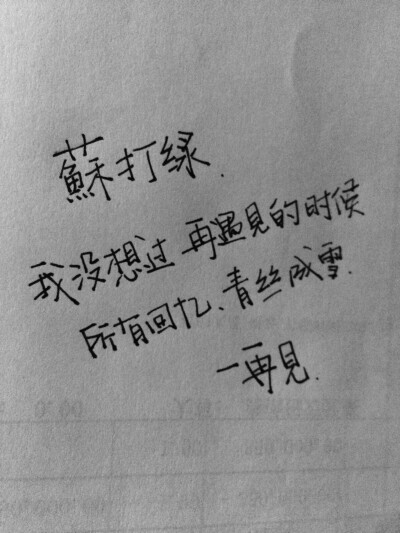 蘇打绿.
我没想过 再遇見的时候
所有回忆、青丝成雪.
一再見.